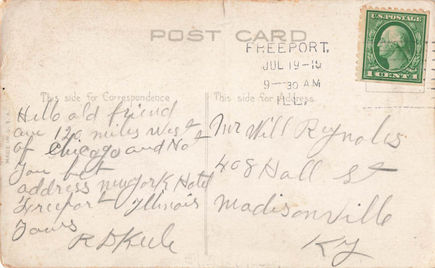 POST CARD
U.S. POSTAGE
1 CENT 1
FREEPORT,
JUL 19-15
9-30 AM
ILL.
This side for Correspondence
This side for Address.
MADE IN U.S.A.
Hello old friend
are 120 miles West
of Chicago and Not
you bet
address New York Hotel
Freeport Illinois
Yours
R D
Mr Will Reynolds
408 Hall St
Madisonville
Ky